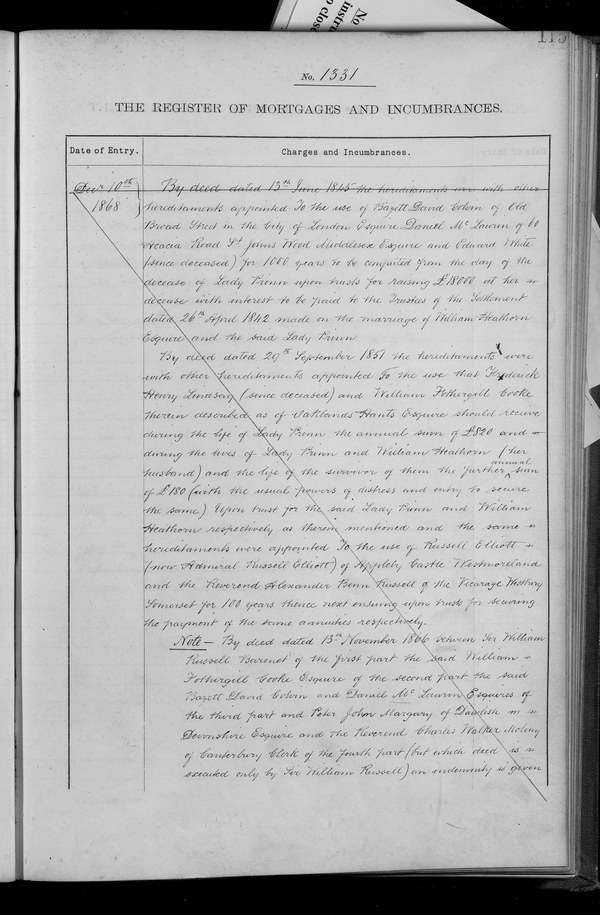 No
instru
o close
115
No. 1331
THE REGISTER OF MORTGAGES AND INCUMBRANCES.
Date of Entry.
Charges and Incumbrances.
Decr 10th
1868
By deed dated 13th June 1845 the hereditaments were with other
hereditaments appointed To the use of Bazett David Colvin of Old
Broad Street in the City of London Esquire Daniel Mc Laurin of 60
Acacia Road St. Johns Wood Middlesex Esquire and Edward White
(since deceased) for 1000 years to be computed from the day of the
decease of Lady Prinn upon trusts for raising £18000 at her
decease with interest to be paid to the Trustees of the Settlement
dated 26th April 1842 made on the marriage of William Heathorn
Esquire and the said Lady Prinn
By deed dated 29th September 1851 the hereditaments were
with other hereditaments appointed To the use that Frederick
Henry Lindsay (since deceased) and William Fothergill Cooke
therein described as of Oaklands Hants Esquire should receive
during the life of Lady Prinn the annual sum of £820 and
during the lives of Lady Prinn and William Heathorn (her
husband) and the life of the survivor of them the further annual sum
of £180 (with the usual powers of distress and entry to secure
the same) Upon trust for the said Lady Prinn and William
Heathorn respectively as therein mentioned and the same
hereditaments were appointed To the use of Russell Elliott
(now Admiral Russell Elliott) of Appleby Castle Westmoreland
and the Reverend Alexander Benn Russell of the Vicarage Westbury
Somerset for 100 years thence next ensuing upon trusts for securing
the payment of the same annuities respectively.
Note – By deed dated 13th November 1866 between Sir William
Russell Baronet of the first part the said William
Fothergill Cooke Esquire of the second part the said
Bazett David Colvin and Daniel Mc Laurin Esquires of
the third part and Peter John Margary of Dawlish in
Devonshire Esquire and the Reverend Charles Walker Molony
of Canterbury Clerk of the fourth part (but which deed is
executed only by Sir William Russell) an indemnity is given